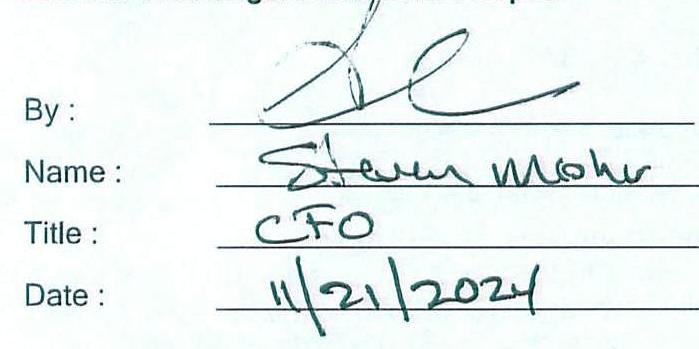 By :
Name : Steven Mohr
Title : CFO
Date : 11/21/2024